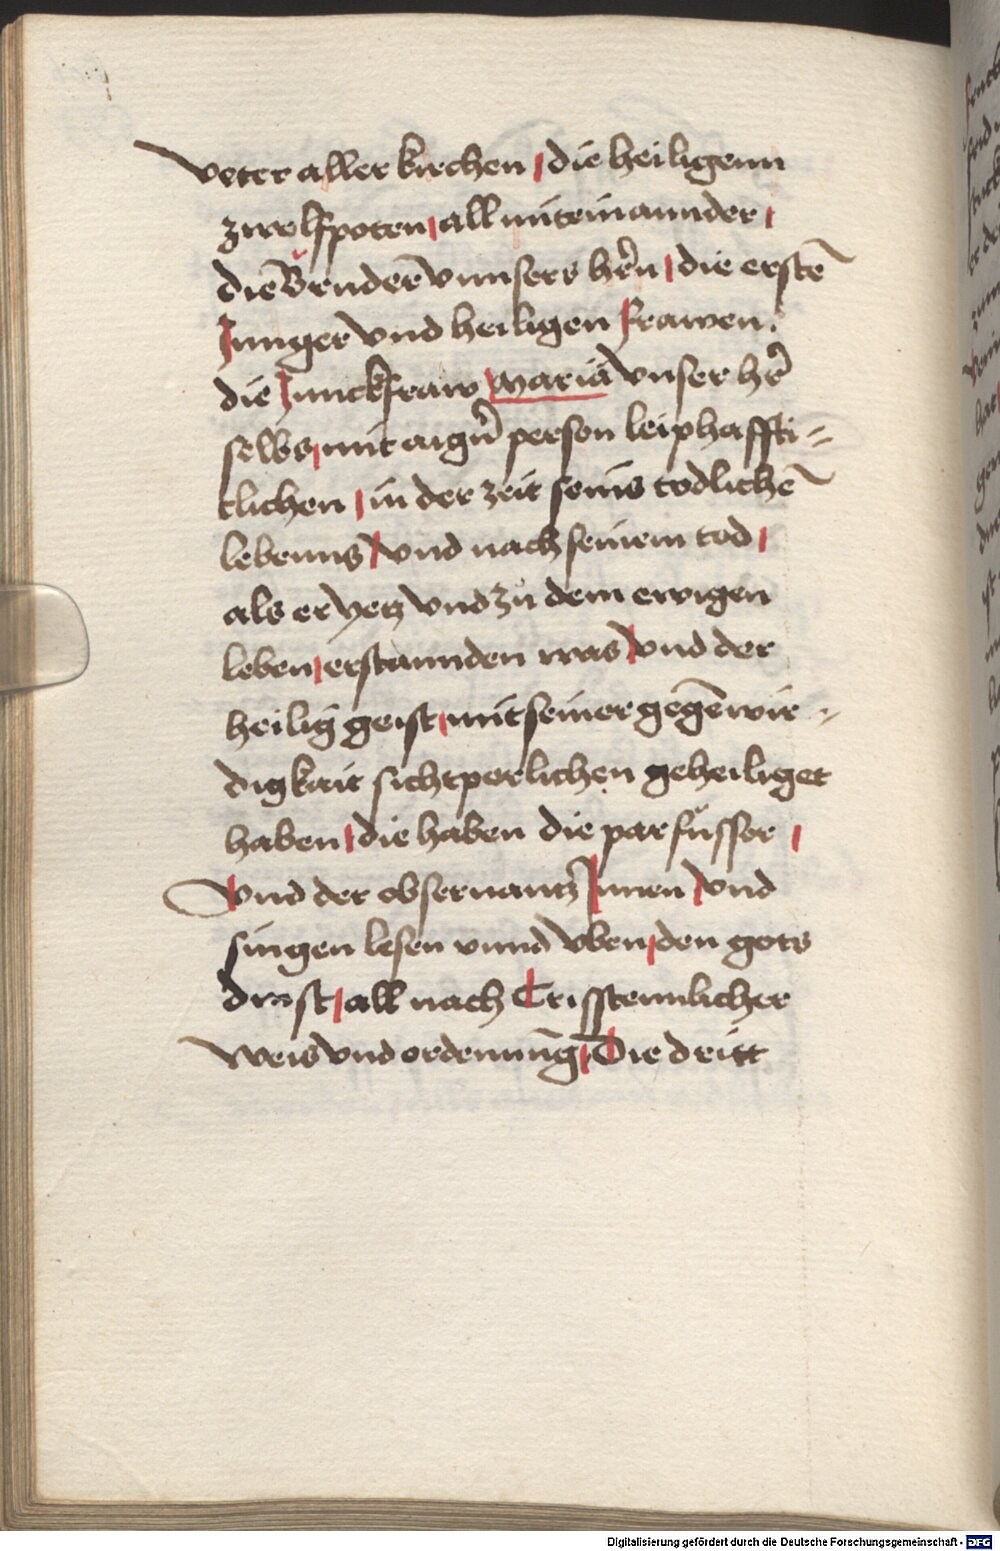 veter aller kirchen / die heiligenn
zwelfpoten / all miteinannder /
die Bruderē vnnsers hr̄n / die erstē
Junger vnd heiligen frawen.
die Junckfraw Maria vnser hr̄
selbs / mit aign̄ person leiphaffti=
clichen / in der zeit seins todlichē
lebenns / vnd nach seinem tod /
als er yetz vnd zů dem ewigen
leben / erstannden was / vnd der
heilig geist / mit seiner gegēwir=
digkait sichtperlichen geheiliget
haben / die haben die parfüsser /
Vnd der obseruantz Jnnen / vnd
singen lesen vnnd vben / den gots
dinst / all nach Cristenlicher
weis vnd ordenūng / Die dritt
Digitalisierung gefördert durch die Deutsche Forschungsgemeinschaft - DFG